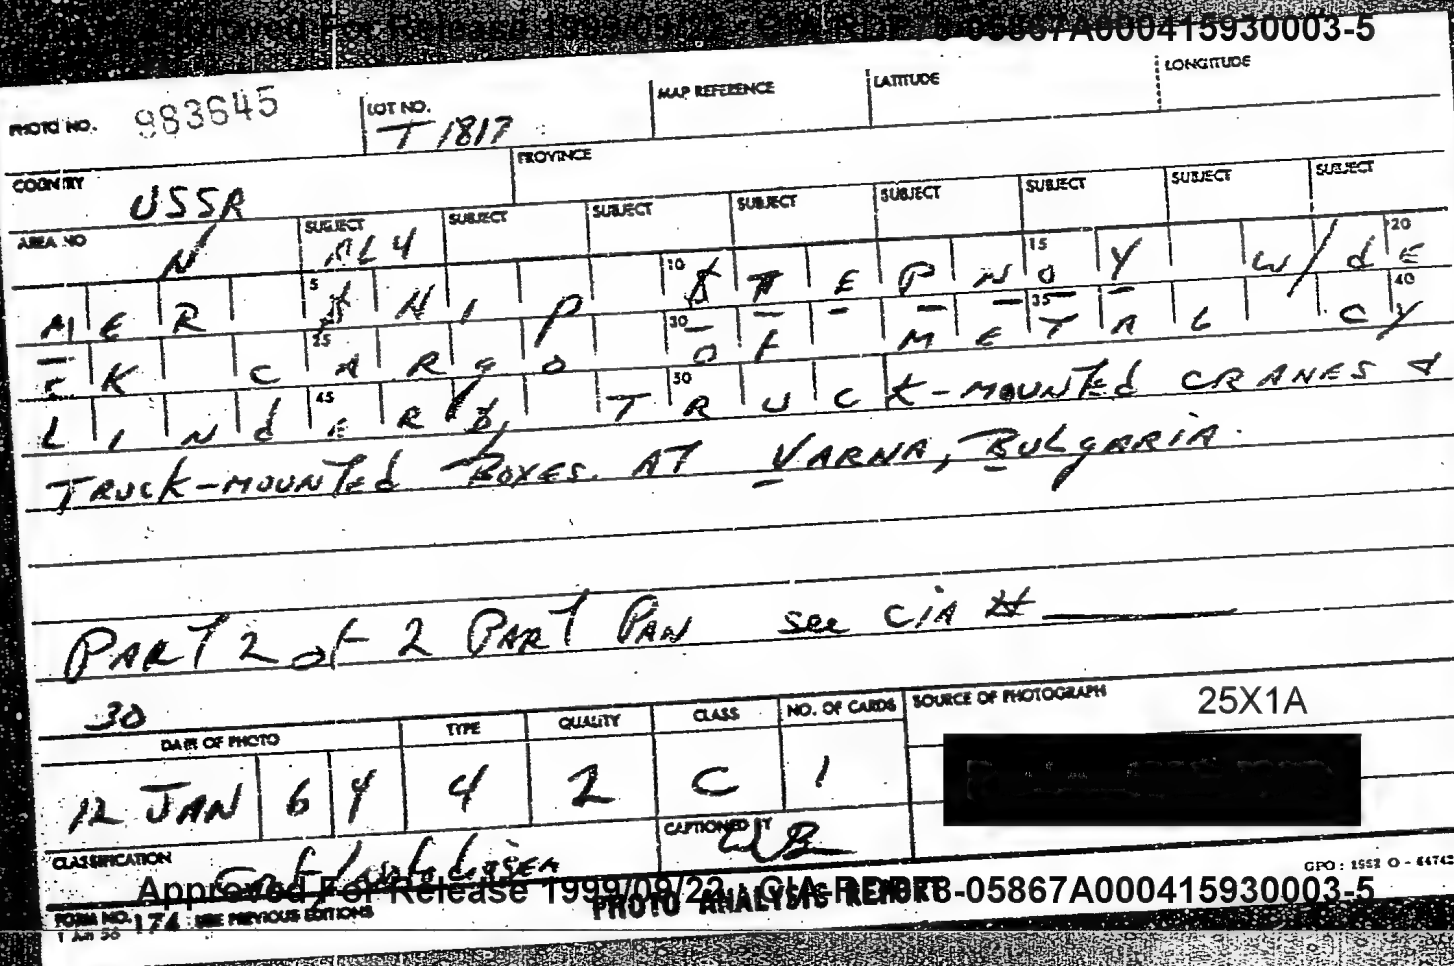 Approved For Release 1999/09/22 : CIA-RDP78-05867A000415930003-5
PHOTO NO. 983645 LOT NO. T 1817 MAP REFERENCE LATITUDE LONGITUDE
COUNTRY USSR PROVINCE
AREA NO N SUBJECT RL4 SUBJECT SUBJECT SUBJECT SUBJECT SUBJECT SUBJECT SUBJECT
MER SHIP STEPNOY W/dE
CK CARgO Of METAL CY
LINdERS, TRUCK-MOUNTEd CRANES &
TRUCK-MOUNTEd BOXES. AT VARNA, BULgARIA.
PART 2 of 2 PART PAN see CIA #
30
DATE OF PHOTO TYPE QUALITY CLASS NO. OF CARDS SOURCE OF PHOTOGRAPH 25X1A
12 JAN 64 4 2 C 1
CLASSIFICATION CAPTIONED BY
GPO : 1952 O -
Approved For Release 1999/09/22 : CIA-RDP78-05867A000415930003-5
FORM NO. 174 SEE PREVIOUS EDITIONS PHOTO ANALYSIS REPORT
1 JUN 56